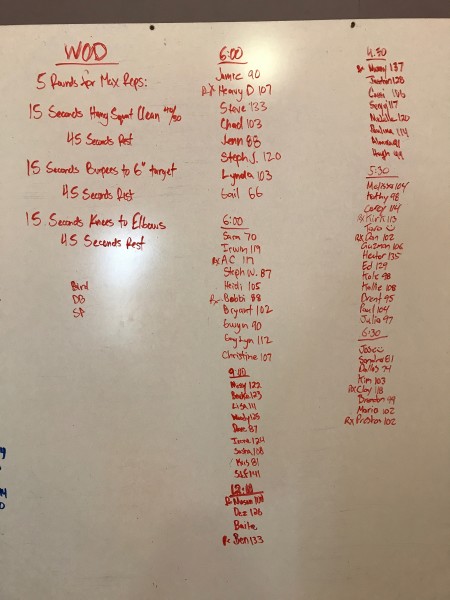 WOD
5 Rounds for Max Reps:
15 Seconds Hang Squat Clean
45 Seconds Rest
15 Seconds Burpees to 6" target
45 Seconds Rest
15 Seconds Knees to Elbows
45 Seconds Rest
DB
SP
6:00
Jamie 90
RX Heavy D 107
Steve 133
Chad 103
Jenn 88
Steph J. 120
Lynda 103
Gail 66
6:00
Sara 70
Irwin 119
RX AC 117
Steph W. 87
Heidi 105
Rx Bobbi 88
Bryant 102
Gwyn 90
112
Christine 107
9:00
Missy 122
123
Lisa 111
Wendy 125
Dave 87
124
Sasha 108
Kris 81
141
Mason 108
Dez 126
Ben 133
4:30
137
128
106
117
120
Paulina 114
Hugh 99
5:30
Melissa 104
Kathy 98
Corey 114
RX Kirk 113
Tara
RX Dan 102
Guzman 106
Hector 135
Ed 129
Kate 98
Kallie 108
Brent 95
Paul 104
Julia 97
6:30
Sandra 81
Dallas 74
Kim 103
RX Clay 118
Brandon 99
Mario 102
RX Preston 102